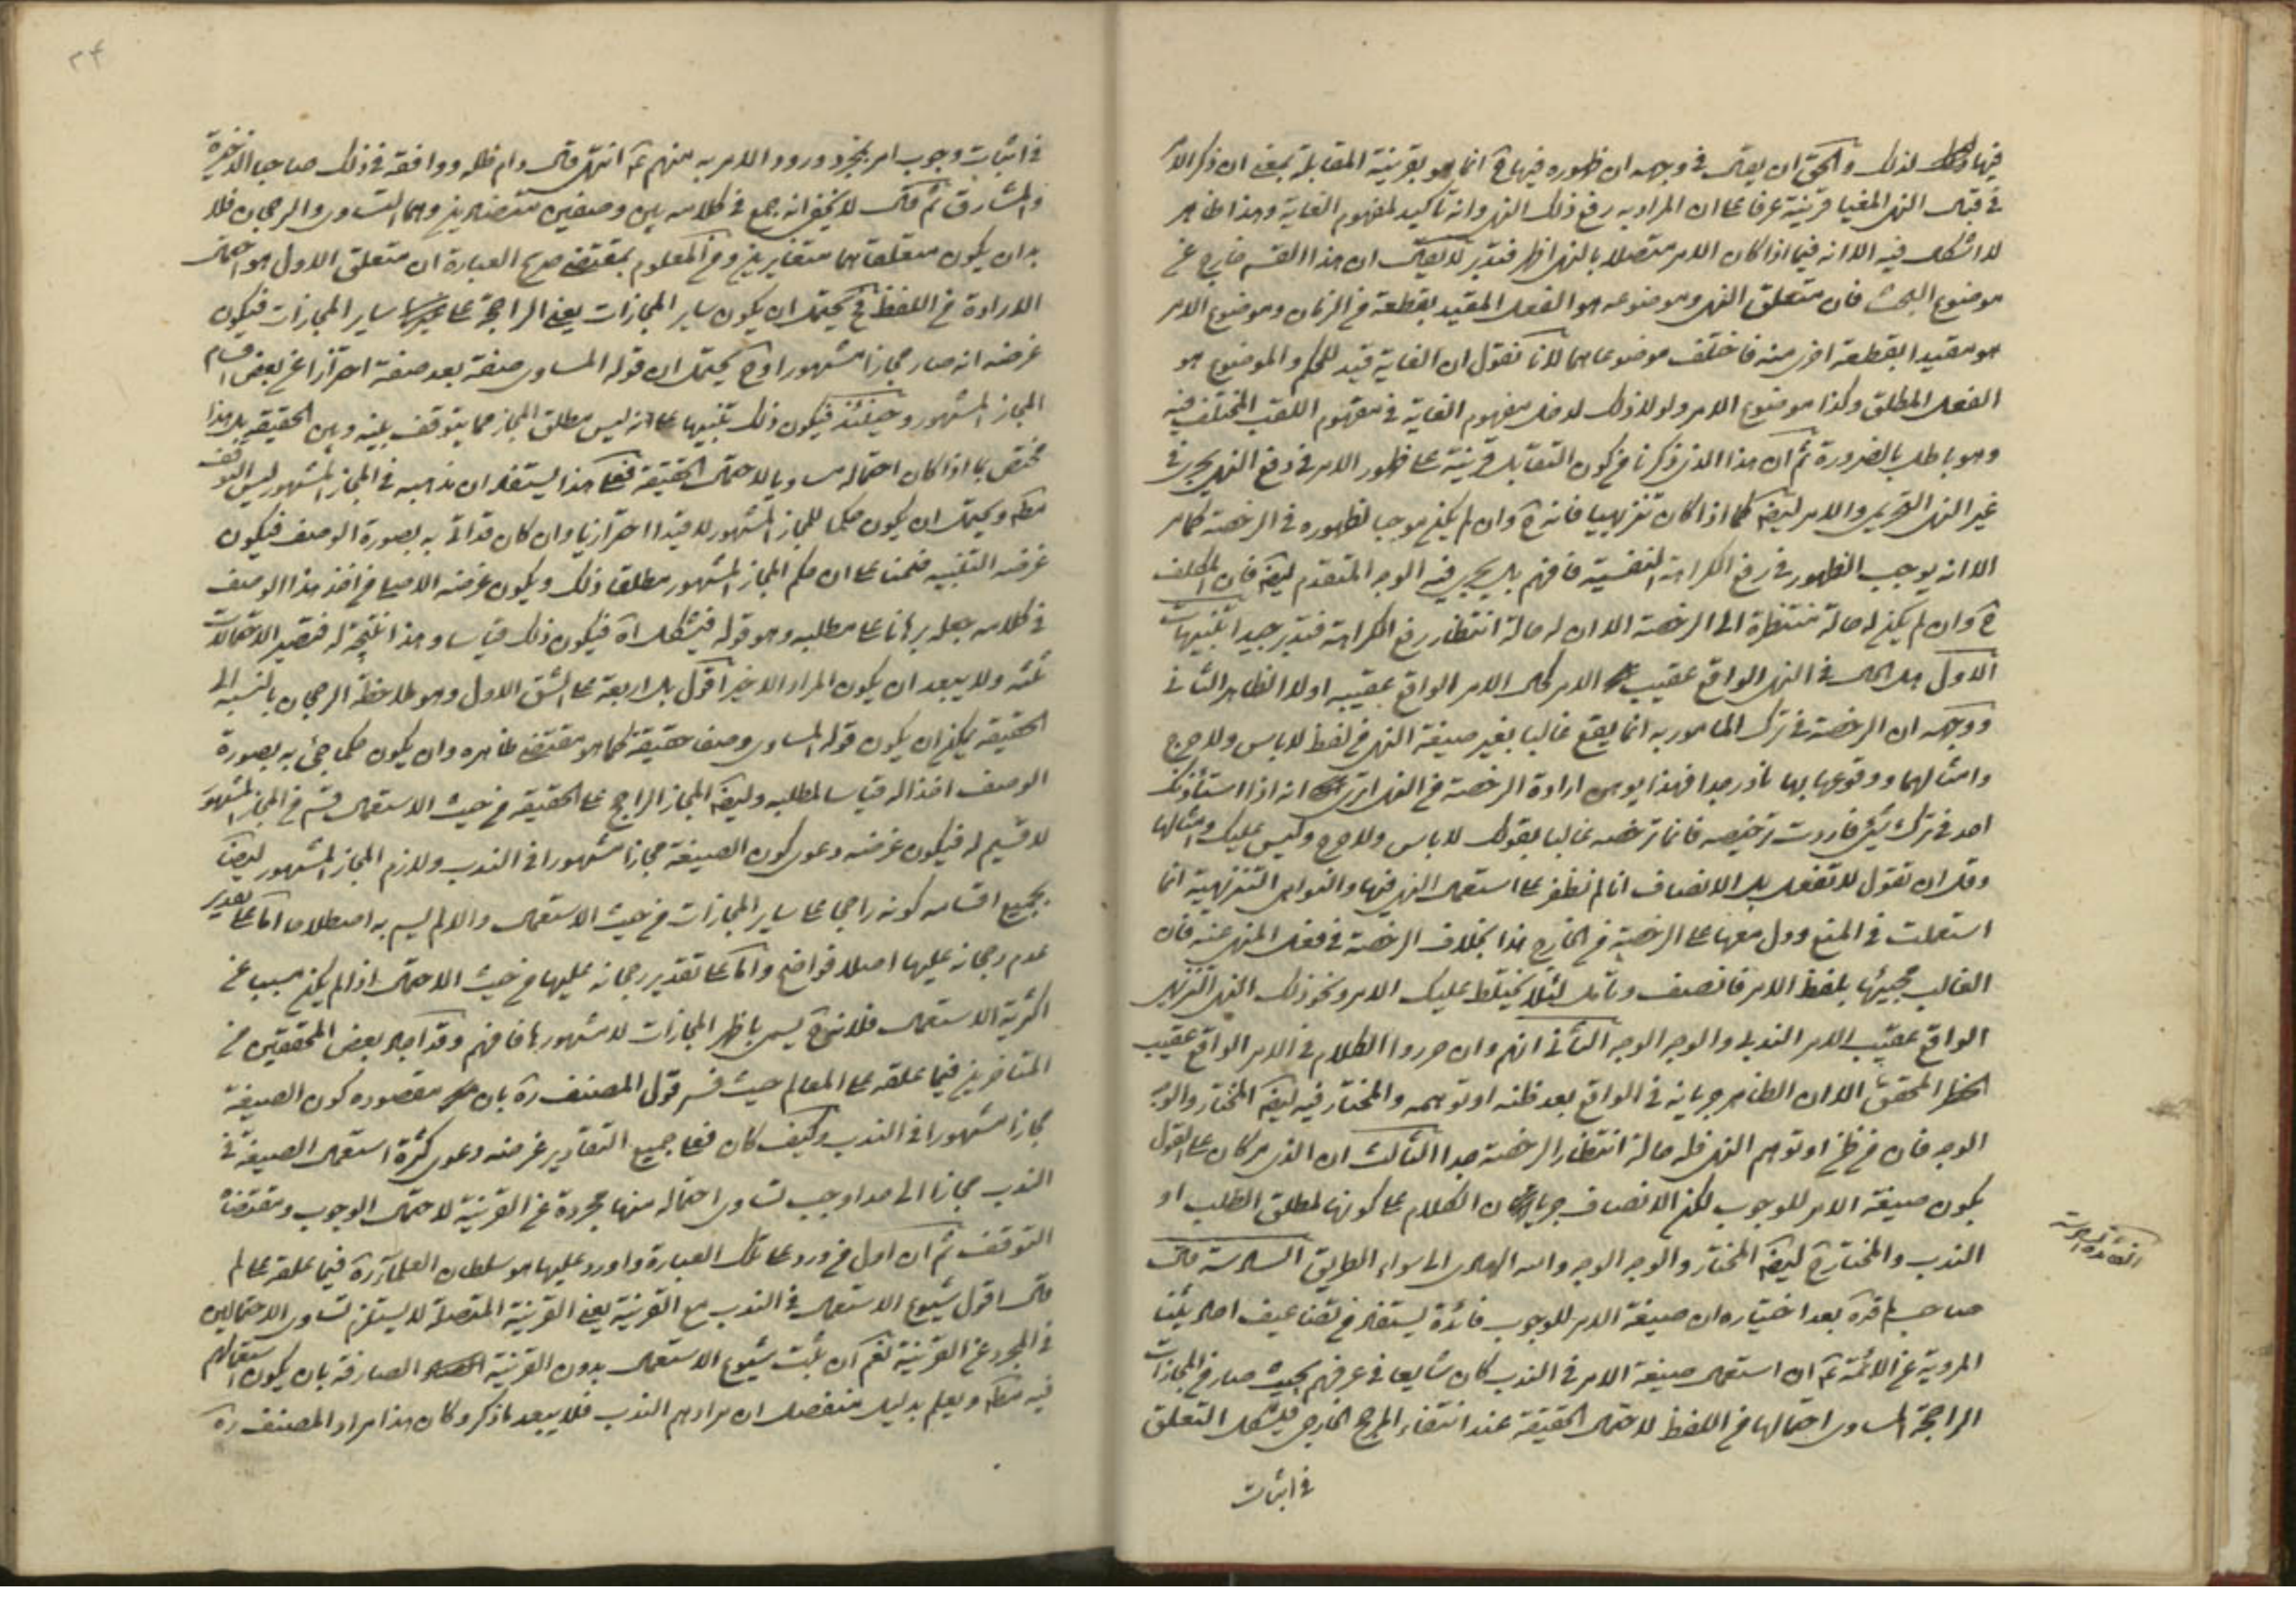 فيها لذلك والحق ان يقال في وجهه ان ظهوره فيها ح انما هو بقرينة المقابلة بمعنى ان ذكر الامر
في قبال النهي المغيا قرينة عرفا على ان المراد به رفع ذلك النهي وانه تاكيد لمفهوم الغاية وهذا ظاهر
لا اشكال فيه الا انه فيما اذا كان الامر متصلا بالنهي اظهر فتدبر لا يقال ان هذا القسم خارج عن
موضوع البحث فان متعلق النهي وموضوعه هو الفعل المقيد بقطعة من الزمان وموضوع الامر
هو مقيدا بقطعة اخرى منه فاختلف موضوعاهما لانا نقول ان الغاية قيد للحكم والموضوع هو
الفعل المطلق وكذا موضوع الامر ولولا ذلك لدخل مفهوم الغاية في مفهوم اللقب المختلف فيه
وهو باطل بالضرورة ثم ان هذا الذي ذكرنا من كون التقابل قرينة على ظهور الامر في رفع النهي يجري في
غير النهي التحريمي والامر ايضا كما اذا كان تنزيهيا فانه ح وان لم يكن موجبا لظهوره في الرخصة كما مر
الا انه يوجب الظهور في رفع الكراهة النفسية فافهم بل يجري فيه الوجه المتقدم ايضا فان المكلف
ح وان لم يكن له حالة منتظرة الى الرخصة الا ان له حالة انتظار رفع الكراهة فتدبر جيدا تنبيهات
الاول هل الحال في النهي الواقع عقيب الامر كحال الامر الواقع عقيبه او لا الظاهر الثاني
ووجهه ان الرخصة في ترك المامور به انما يقع غالبا بغير صيغة النهي من لفظ لا باس ولا حرج
وامثالهما ووقوعها بها نادر جدا فهذا يوهن ارادة الرخصة من النهي انه اذا استأذنك
احد في ترك شيء فاردت ترخيصه فانما ترخصه غالبا بقولك لا باس ولا حرج وليس عليك وامثالها
وقل ان تقول لا تفعل بل الانصاف انا لم نظفر على استعمال النهي فيها والنواهي التنزيهية انما
استعملت في المنع ودل معها على الرخصة من الخارج هذا بخلاف الرخصة في فعل المنهي عنه فان
الغالب مجيئها بلفظ الامر فانصف وتأمل لئلا يختلط عليك الامر ونحو ذلك النهي التنزيهي
الواقع عقيب الامر الندبي والوجه الوجه الثاني انهم وان حرروا الكلام في الامر الواقع عقيب
الحظر المحقق الا ان الظاهر جريانه في الواقع بعد ظنه او توهمه والمختار فيه ايضا المختار والوجه
الوجه فان من ظن او توهم النهي فله حالة انتظار الرخصة جدا الثالث ان الذي مر كان على القول
بكون صيغة الامر للوجوب لكن الانصاف جريان الكلام على كونها لمطلق الطلب او
الندب والمختار ح ايضا المختار والوجه الوجه والله الهادي الى سواء الطريق السادسة قال
صاحب لم قده بعد اختياره ان صيغة الامر للوجوب فائدة يستفاد من تضاعيف احاديثنا
المروية عن الائمة ع ان استعمال صيغة الامر في الندب كان شايعا في عرفهم بحيث صار من المجازات
الراجحة المساوي احتمالها من اللفظ لاحتمال الحقيقة عند انتفاء المرجح الخارجي فيشكل التعلق
في اثبات
في اثبات وجوب امر بمجرد ورود الامر به منهم ع انتهى قال دام ظله ووافقه في ذلك صاحبا الذخيرة
والمشارق ثم قال لا يخفى انه جمع في كلامه بين وصفين متضادين وهما التساوي والرجحان فلا
بد ان يكون متعلقاهما متغايرين ومن المعلوم بمقتضى صريح العبارة ان متعلق الاول هو احتمال
الارادة من اللفظ فح يحتمل ان يكون ساير المجازات يعني الراجحة على ساير المجازات فيكون
غرضه انه صار مجازا مشهورا وح يحتمل ان قوله المساوي صفة بعد صفة احترازا عن بعض اقسام
المجاز المشهور وحينئذ فيكون ذلك تنبيها على انه ليس مطلق المجاز مما يتوقف بينه وبين الحقيقة بل هذا
مختص بما اذا كان احتماله مساويا لاحتمال الحقيقة فعلى هذا يستفاد ان مذهبه في المجاز المشهور ليس التوقف
مطلقا ويحتمل ان يكون حكما للمجاز المشهور لا قيدا احترازيا وان كان قد اتى به بصورة الوصف فيكون
غرضه التنبيه ضمنا على ان حكم المجاز المشهور مطلقا ذلك ويكون غرضه الاصلي من اخذ هذا الوصف
في كلامه جعله برهانا على مطلبه وهو قوله فيشكل آه فيكون ذلك قياسا وهذا نتيجة له فتصير الاحتمالات
ثلثة ولا يبعد ان يكون المراد الاخير اقول بل اربعة على الشق الاول وهو ملاحظة الرجحان بالنسبة الى
الحقيقة يمكن ان يكون قوله المساوي وصف حقيقة كما هو مقتضى ظاهره وان يكون حكما جيء به بصورة
الوصف اخذا له قياسا لمطلبه وايضا المجاز الراجح على الحقيقة من حيث الاستعمال قسم من المجاز المشهور
لا قسيم له فيكون غرضه دعوى كون الصيغة مجازا مشهورا في الندب ولازم المجاز المشهور ايضا
بجميع اقسامه كونه راجحا على ساير المجازات من حيث الاستعمال والا لم يسم به اصطلاحا اما على تقدير
عدم رجحانه عليها اصلا فواضح واما على تقدير رجحانه عليها من حيث الاحتمال اذا لم يكن مسببا عن
اكثرية الاستعمال فلانه ح يسمى باظهر المجازات لا مشهورها فافهم وقد اجاد بعض المحققين من
المتاخرين فيما علقه على المعالم حيث فسر قول المصنف ره بان مقصوده كون الصيغة
مجازا مشهورا في الندب وكيف كان فعلى جميع التقادير غرضه دعوى كثرة استعمال الصيغة في
الندب مجازا الى حد اوجب تساوي احتماله منها مجردة عن القرينة لاحتمال الوجوب ومقتضاه
التوقف ثم ان اول من ورد على تلك العبارة واورد عليها هو سلطان العلماء ره فيما علقه على لم
قال اقول شيوع الاستعمال في الندب مع القرينة يعني القرينة المتصلة لا يستلزم تساوي الاحتمالين
في المجرد عن القرينة نعم ان ثبت شيوع الاستعمال بدون القرينة الصارفة بان يكون استعمالهم
فيه مطلقا ويعلم بدليل منفصل ان مرادهم الندب فلا يبعد ما ذكر وكان هذا مراد المصنف ره